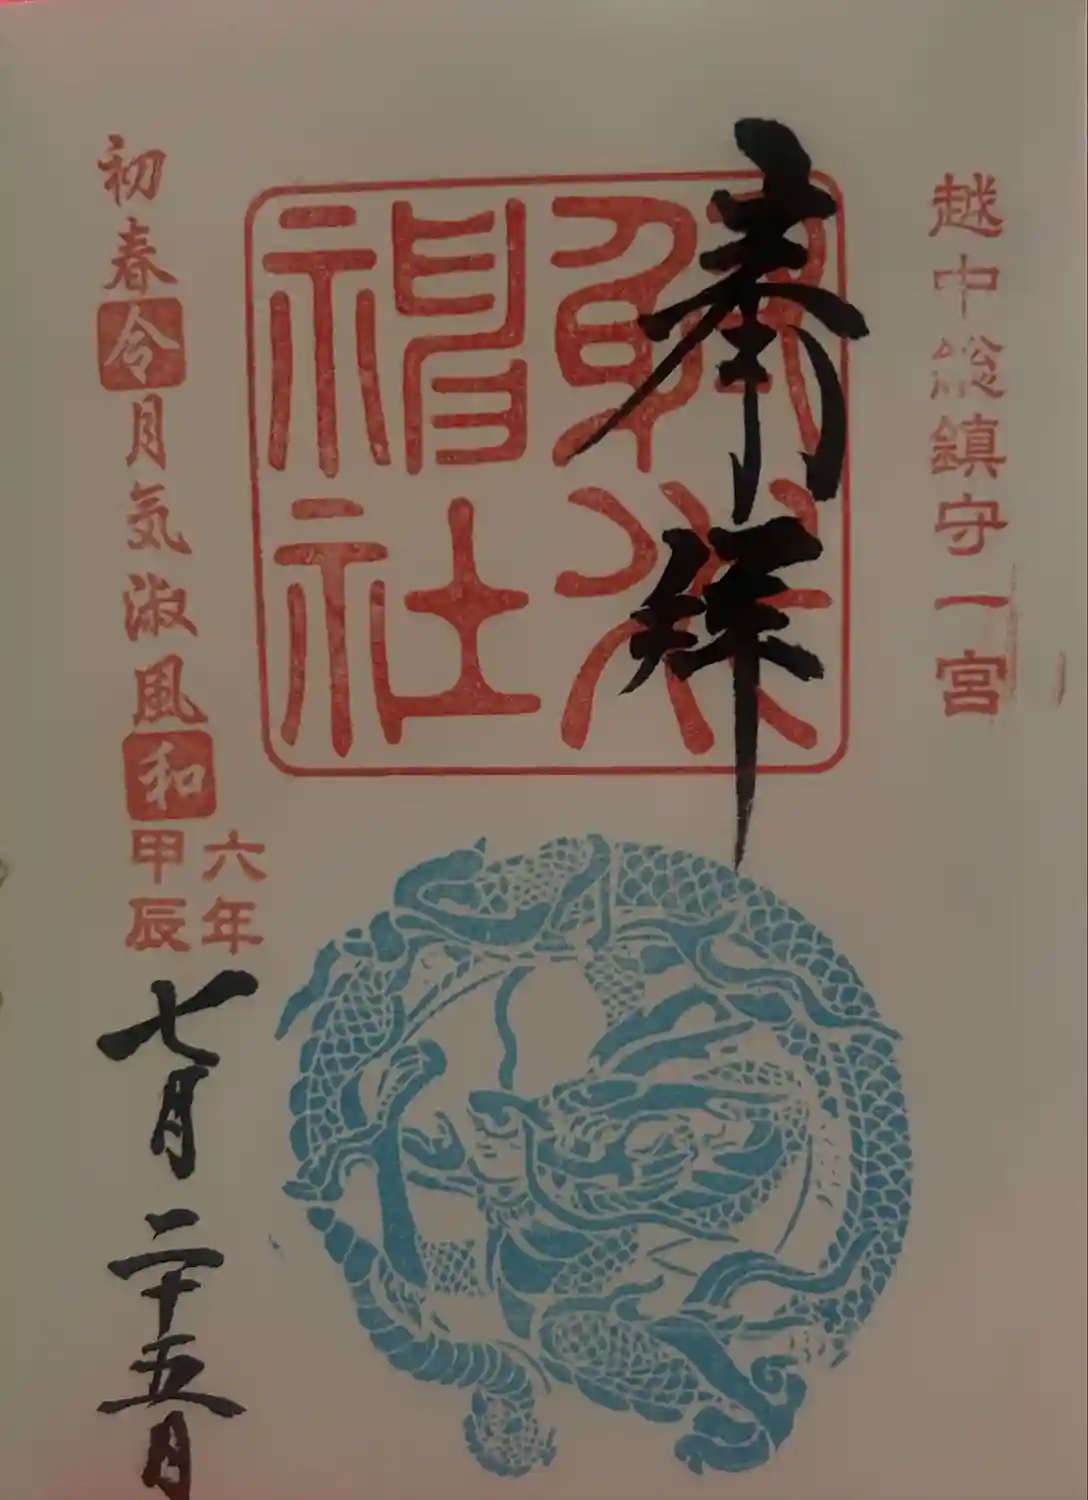 越中総鎮守一宮
奉拝
射水神社
初春令月気淑風和
六年
甲辰
七月二十五日